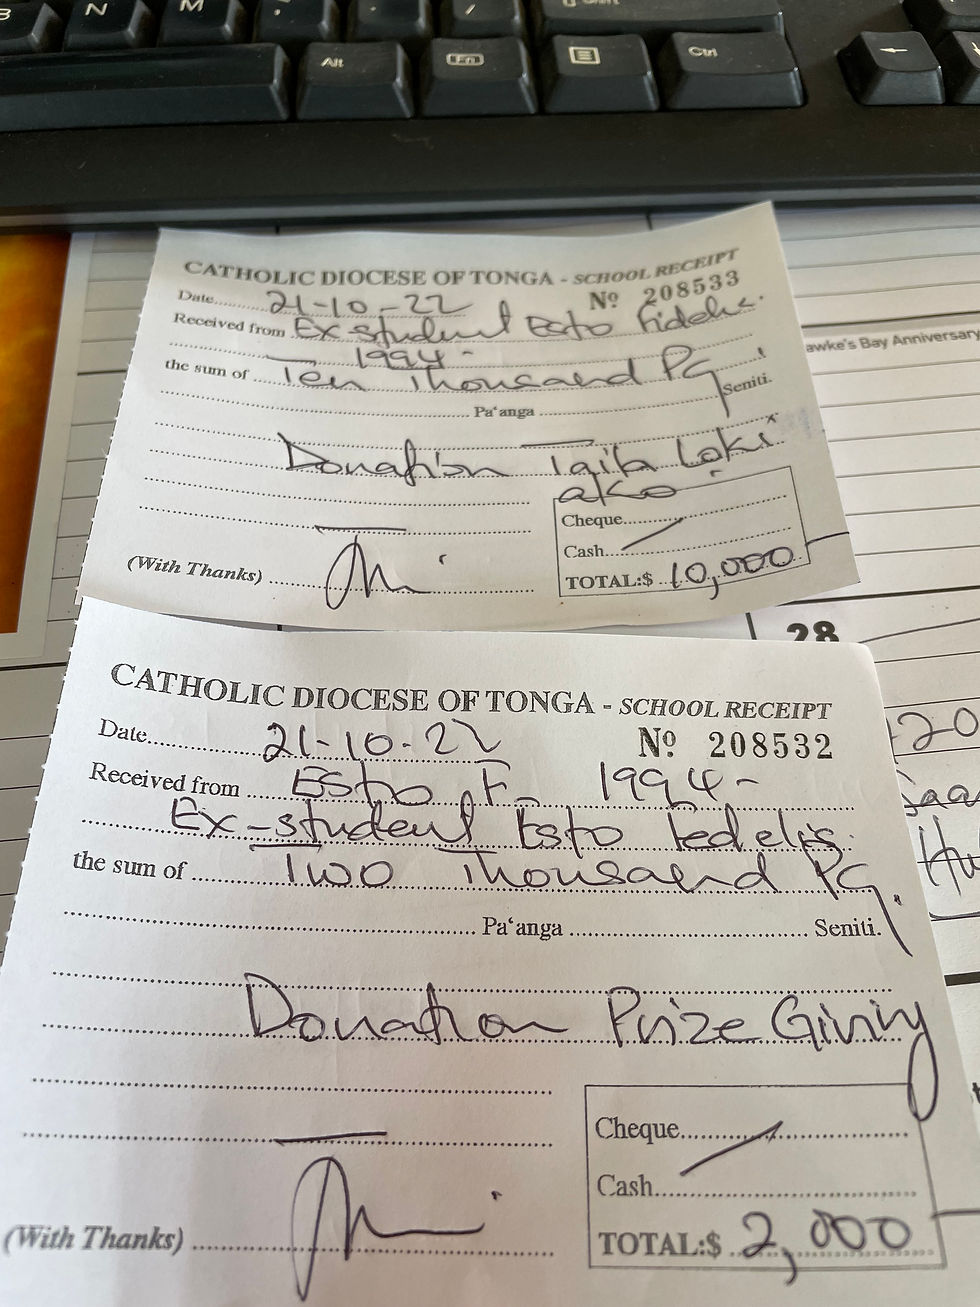 B N M , . /
Alt Fn Ctrl ←
CATHOLIC DIOCESE OF TONGA - SCHOOL RECEIPT
Date 21-10-22 Nº 208533
Received from Ex student Esto Fidelis.
1994-
the sum of Ten Thousand Pg
Pa'anga Seniti.
Donation Taila Loki
ako
Cheque
Cash
(With Thanks)
TOTAL:$ 10,000
awke's Bay Anniversary
28
CATHOLIC DIOCESE OF TONGA - SCHOOL RECEIPT
Date 21-10-22 Nº 208532
Received from Esto F. 1994-
Ex-student Esto Fedelis.
the sum of Two Thousand Pg.
Pa'anga Seniti.
Donation Prize Giving
Cheque
Cash
(With Thanks)
TOTAL:$ 2,000